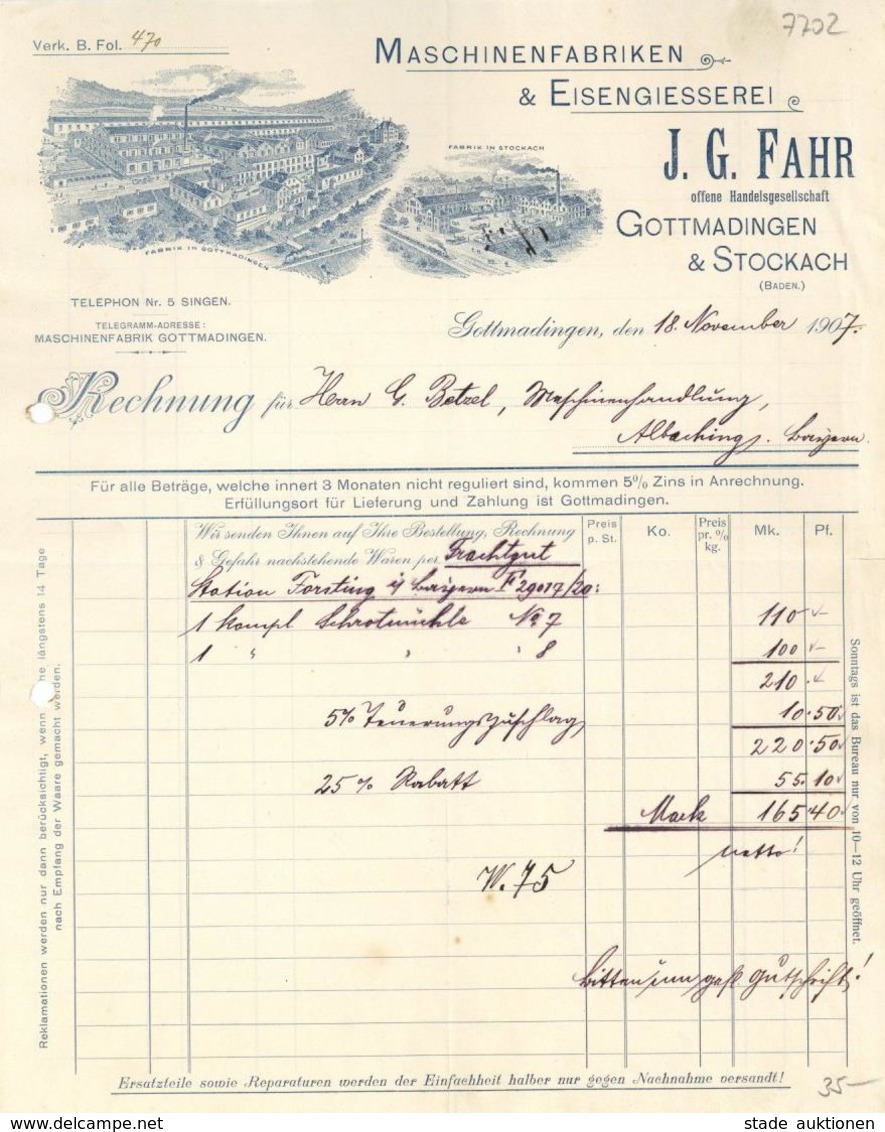 7702
Verk. B. Fol. 470
MASCHINENFABRIKEN
& EISENGIESSEREI
J. G. FAHR
offene Handelsgesellschaft
GOTTMADINGEN
& STOCKACH
(BADEN.)
FABRIK IN STOCKACH
FABRIK IN GOTTMADINGEN
TELEPHON Nr. 5 SINGEN.
TELEGRAMM-ADRESSE:
MASCHINENFABRIK GOTTMADINGEN.
Gottmadingen, den 18. November 1907.
Rechnung für Herrn G. Betzel, Maschinenhandlung,
Albaching. Bayern.
Für alle Beträge, welche innert 3 Monaten nicht reguliert sind, kommen 5% Zins in Anrechnung.
Erfüllungsort für Lieferung und Zahlung ist Gottmadingen.
Wir senden Ihnen auf Ihre Bestellung, Rechnung
& Gefahr nachstehende Waren per Frachtgut
Preis p. St. Ko. Preis pr. % kg. Mk. Pf.
Station Forsting i/ Bayern F 29017/20:
1 kompl Schrotmühle No. 7 110 -
1 " " " 8 100 -
210 -
5% Teuerungszuschlag 10.50
220.50
25% Rabatt 55.10
Mark 165.40
netto!
W. 75
Bitten um gefl. Gutschrift!
Reklamationen werden nur dann berücksichtigt, wenn he längstens 14 Tage
nach Empfang der Waare gemacht werden.
Sonntags ist das Bureau nur von 10—12 Uhr geöffnet.
Ersatzteile sowie Reparaturen werden der Einfachheit halber nur gegen Nachnahme versandt!
35-
stade auktionen